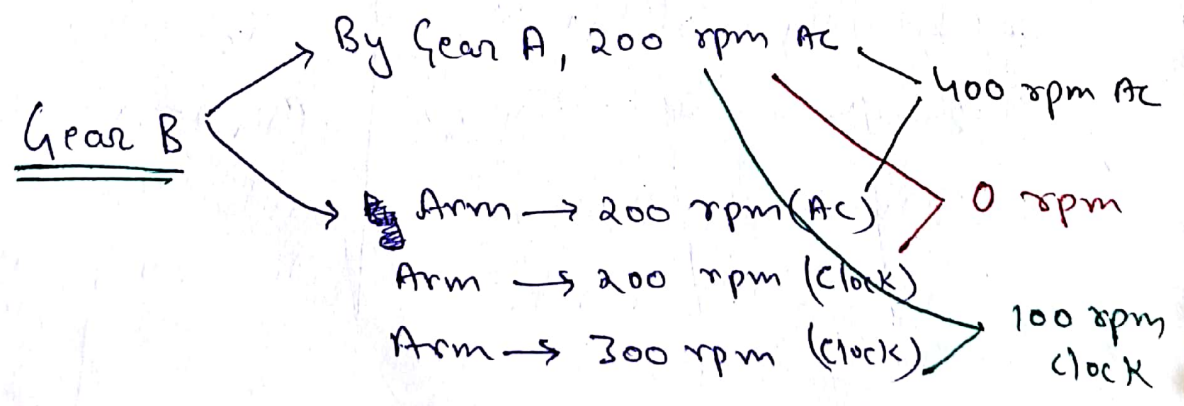 By Gear A, 200 rpm AC
400 rpm AC
Gear B
Arm → 200 rpm (AC)
0 rpm
Arm → 200 rpm (Clock)
Arm → 300 rpm (Clock)
100 rpm
Clock